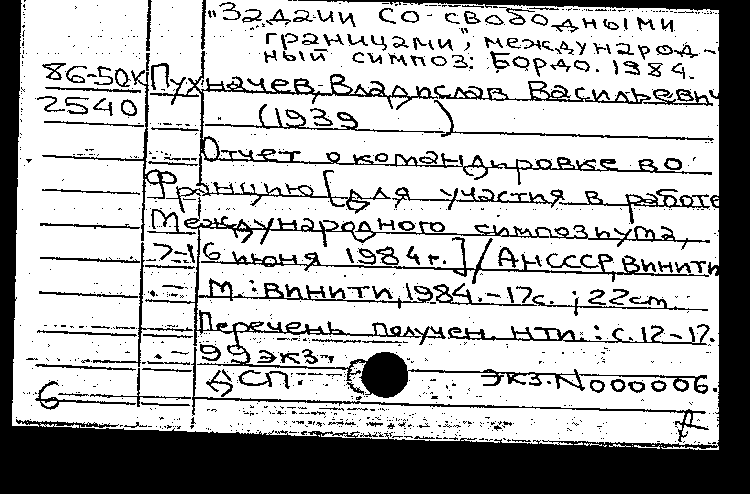 "Задачи со свободными
границами", международ-
ный симпоз: Бордо. 1984.
86-50к Пухначев, Владислав Васильевич
2540 (1939 )
Отчет о командировке во
Францию [для участия в работе
Международного симпозиума,
7-16 июня 1984 г.] / АН СССР, ВИНИТИ
.- М.: ВИНИТИ, 1984.-17с. ; 22см.
Перечень получен. НТИ.: с. 12-17.
.- 99 экз.
ДСП. Экз.N000006.
6